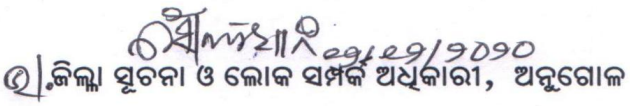 ୧୨/୧୨/୨୦୨୦
ଜିଲ୍ଲା ସୂଚନା ଓ ଲୋକ ସମ୍ପର୍କ ଅଧିକାରୀ, ଅନୁଗୋଳ